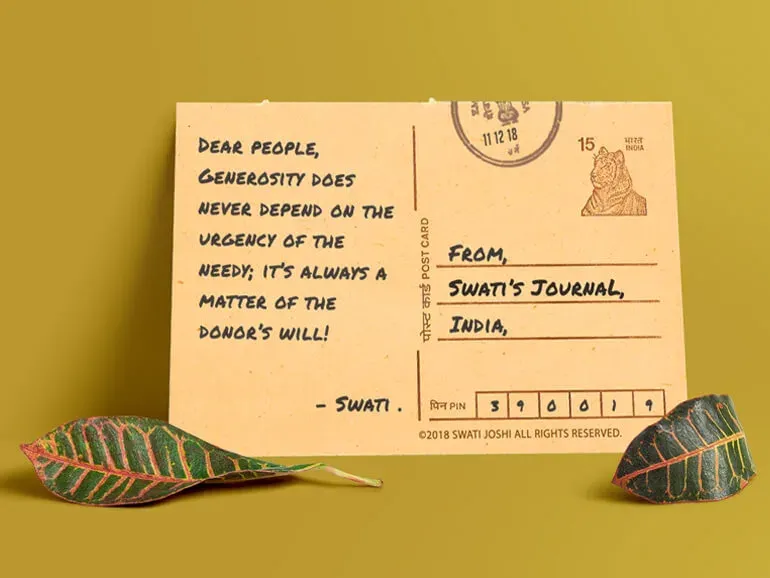 DEAR PEOPLE,
GENEROSITY DOES
NEVER DEPEND ON THE
URGENCY OF THE
NEEDY; IT'S ALWAYS A
MATTER OF THE
DONOR'S WILL!
- SWATI .
पोस्ट कार्ड POST CARD
11 12 18
15 भारत
INDIA
FROM,
SWATI'S JOURNAL,
INDIA,
पिन PIN 3 9 0 0 1 9
©2018 SWATI JOSHI ALL RIGHTS RESERVED.